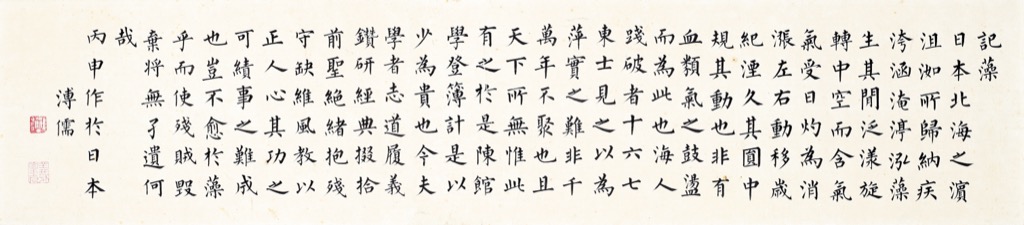 記藻
日本北海之濵
沮洳所歸納疾
洿涵淹渟泓藻
生其閒泛漾旋
轉中空而含氣
氣受日灼為消
漲左右動移歲
紀湮久其圓中
規其動也非有
血類氣之鼓盪
而為此也海人
踐破者十六七
東士見之以為
萍實之難非千
萬年不聚也且
天下所無惟此
有之於是陳館
學登簿計是以
少為貴也今夫
學者志道履義
鑽研經典掇拾
前聖絕緒抱殘
守缺維風教以
正人心其功之
可績事之難成
也豈不愈於藻
乎而使殘賊毀
棄將無孑遺何
哉
丙申作於日本
溥儒